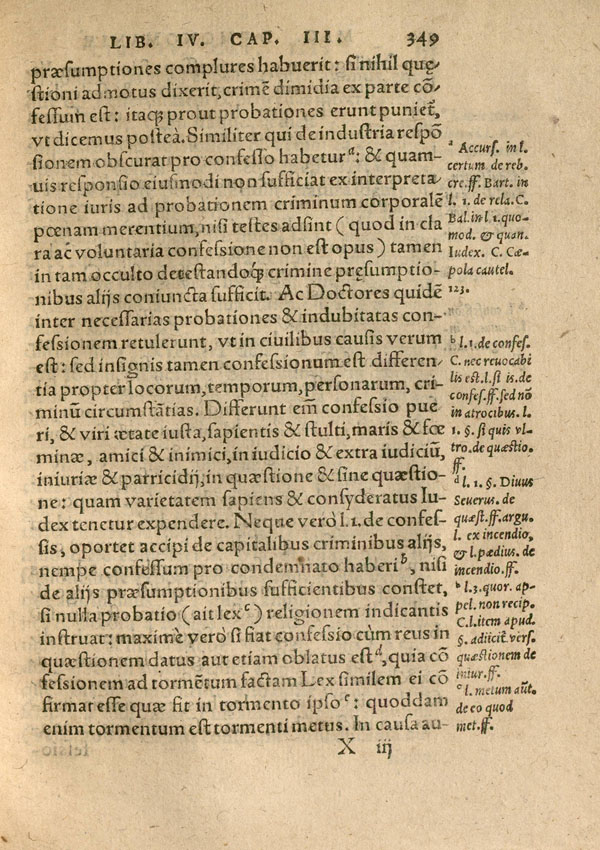 LIB. IV. CAP. III. 349
præsumptiones complures habuerit: si nihil quę-
stioni admotus dixerit, crimē dimidia ex parte cō-
fessum est: itaq; prout probationes erunt puniet,
vt dicemus posteà. Similiter qui de industria respō
sionem obscurat pro confesso habetur ª: & quam-
uis responsio eiusmodi non sufficiat ex interpreta
tione iuris ad probationem criminum corporalē
pœnam merentium, nisi testes adsint (quod in cla
ra ac voluntaria confessione non est opus) tamen
in tam occulto detestandoq; crimine pręsumptio-
nibus alijs coniuncta sufficit. Ac Doctores quidē
inter necessarias probationes & indubitatas con-
fessionem retulerunt, vt in ciuilibus causis verum
est: sed insignis tamen confessionum est differen
tia propter locorum, temporum, personarum, cri-
minū circumstātias. Differunt em̄ confessio pue
ri, & viri ætate iusta, sapientis & stulti, maris & fœ
minæ, amici & inimici, in iudicio & extra iudiciū,
iniuriæ & parricidij, in quæstione & sine quæstio-
ne: quam varietatem sapiens & consyderatus Iu-
dex tenetur expendere. Neque verò l. 1. de confes-
sis, oportet accipi de capitalibus criminibus alijs,
nempe confessum pro condemnato haberi ᵇ, nisi
de alijs præsumptionibus sufficientibus constet,
si nulla probatio (ait lex ᶜ) religionem indicantis
instruat: maximè verò si fiat confessio cùm reus in
quæstionem datus aut etiam oblatus est ᵈ, quia cō
fessionem ad tormētum factam Lex similem ei cō
firmat esse quæ fit in tormento ipso ᵉ: quoddam
enim tormentum est tormenti metus. In causa au-
X iij
ª Accurs. in l.
certum de reb.
cre. ff. Bart. in
l. 1. de rela. C.
Bal. in l. 1. quo-
mod. & quan.
Iudex. C. Cæ-
pola cautel.
123.
ᵇ l. 1. de confes.
C. nec reuocabi
lis est. l. si is. de
confes. ff. sed nō
in atrocibus. l.
1. §. si quis vl-
tro. de quæstio.
ff.
ᵈ l. 1. §. Diuus
Seuerus. de
quæst. ff. argu.
l. ex incendio,
& l. pædius. de
incendio. ff.
ᵇ l. 3. quor. ap-
pel. non recip.
C. l. item apud.
§. adiicit. vers.
quæstionem de
iniur. ff.
ᶜ l. metum aūt.
de eo quod
met. ff.